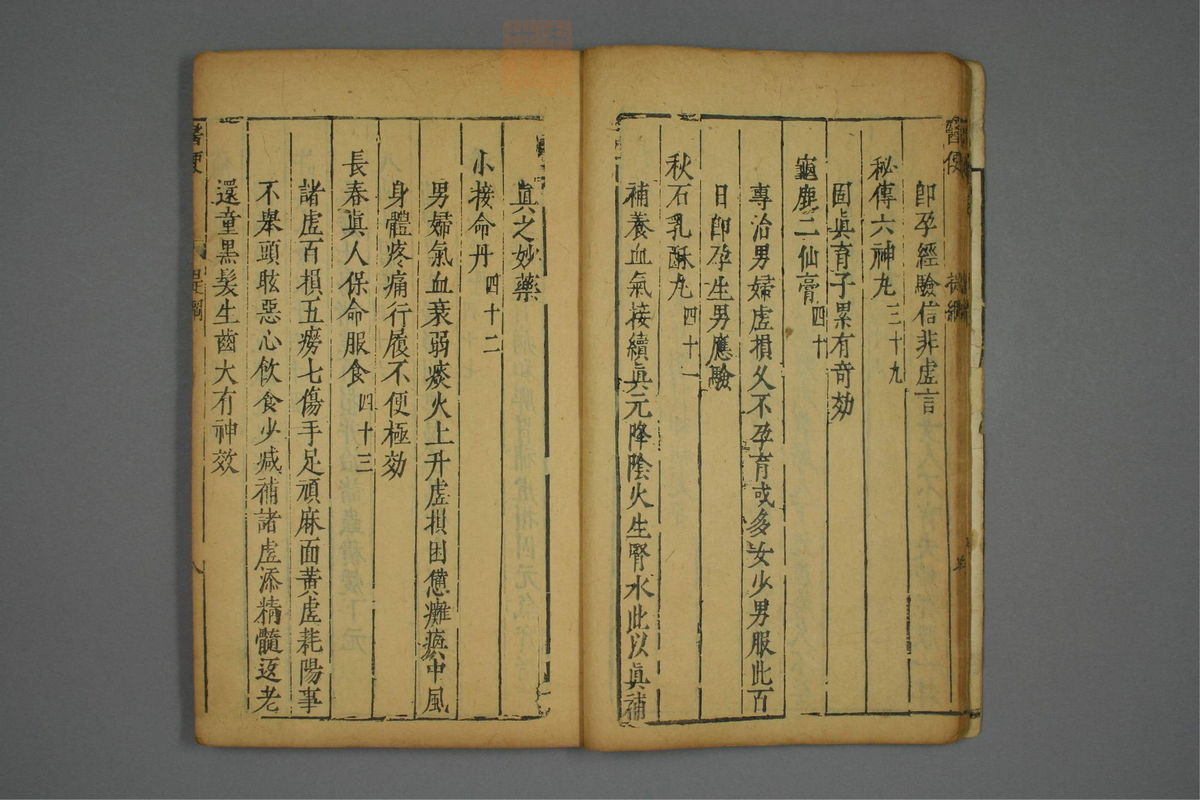 醫便 提綱
卽孕經驗信非虛言
秘傳六神丸 三十九
固眞育子累有奇効
龜鹿二仙膏 四十
專治男婦虛損久不孕育或多女少男服此百
日卽孕生男應驗
秋石乳酥丸 四十一
補養血氣接續眞元降陰火生腎水此以眞補
眞之妙藥
小接命丹 四十二
男婦氣血衰弱痰火上升虛損困憊癱瘓中風
身體疼痛行履不便極効
長春眞人保命服食 四十三
諸虛百損五癆七傷手足頑麻面黃虛耗陽事
不舉頭眩惡心飲食少減補諸虛添精髓返老
還童黑髮生齒大有神效
醫便 提綱 八